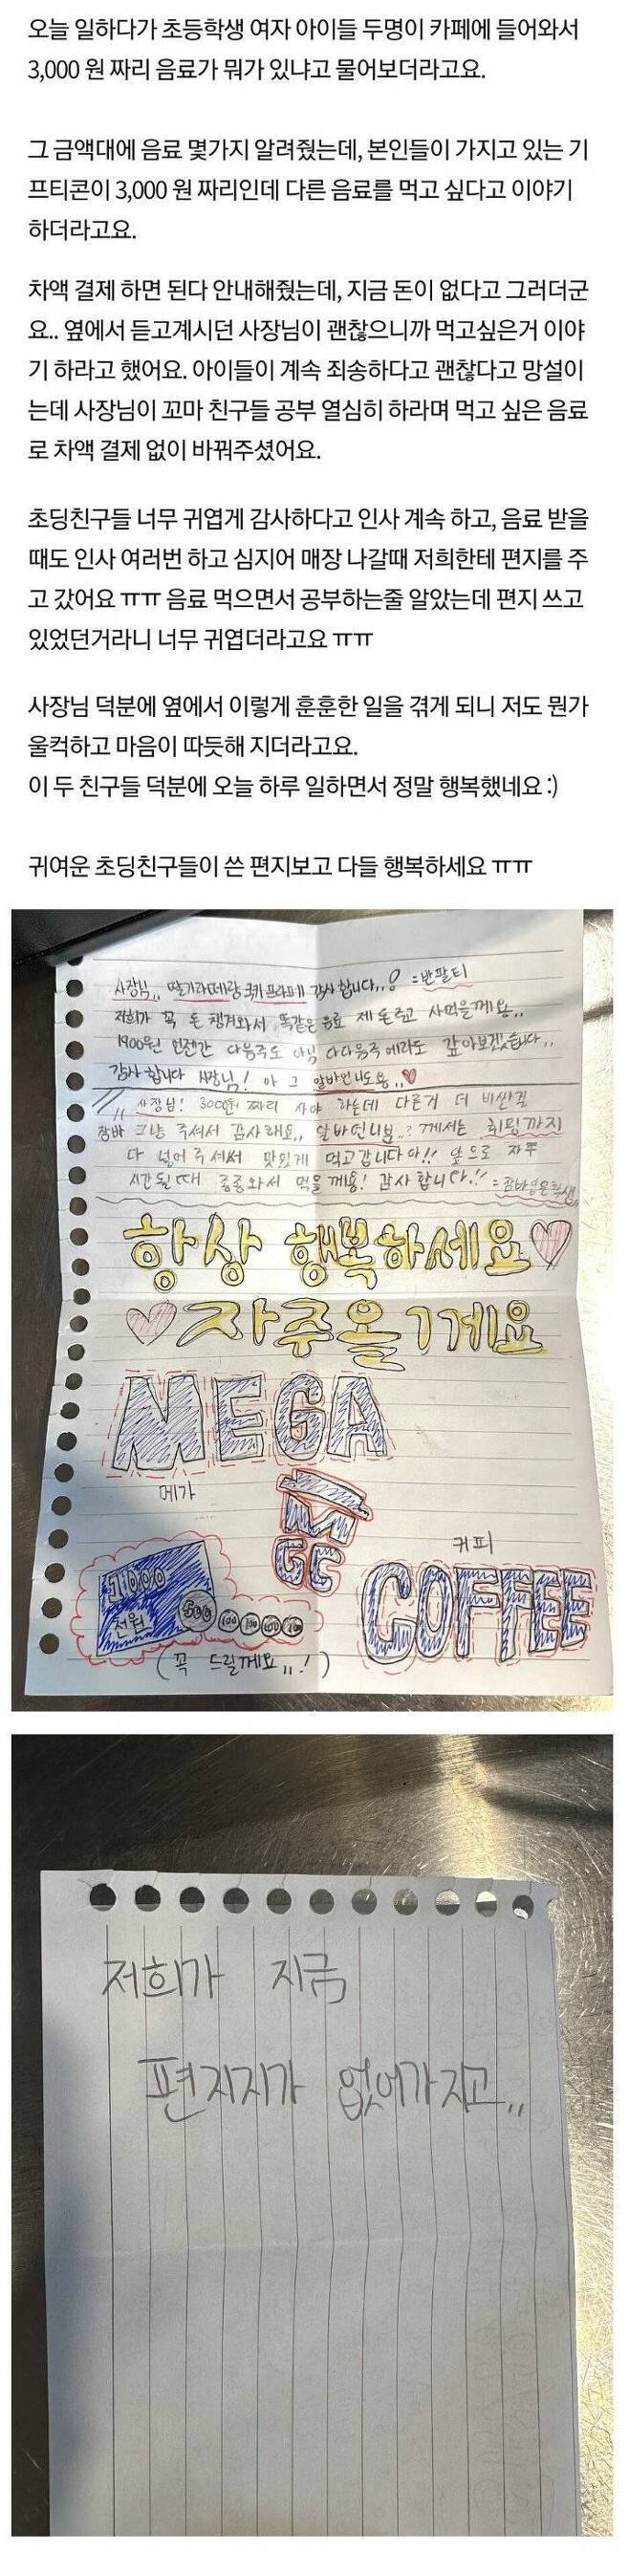 오늘 일하다가 초등학생 여자 아이들 두명이 카페에 들어와서
3,000 원 짜리 음료가 뭐가 있냐고 물어보더라고요.
그 금액대에 음료 몇가지 알려줬는데, 본인들이 가지고 있는 기
프티콘이 3,000 원 짜리인데 다른 음료를 먹고 싶다고 이야기
하더라고요.
차액 결제 하면 된다 안내해줬는데, 지금 돈이 없다고 그러더군
요.. 옆에서 듣고계시던 사장님이 괜찮으니까 먹고싶은거 이야
기 하라고 했어요. 아이들이 계속 죄송하다고 괜찮다고 망설이
는데 사장님이 꼬마 친구들 공부 열심히 하라며 먹고 싶은 음료
로 차액 결제 없이 바꿔주셨어요.
초딩친구들 너무 귀엽게 감사하다고 인사 계속 하고, 음료 받을
때도 인사 여러번 하고 심지어 매장 나갈때 저희한테 편지를 주
고 갔어요 ㅠㅠ 음료 먹으면서 공부하는줄 알았는데 편지 쓰고
있었던거라니 너무 귀엽더라고요 ㅠㅠ
사장님 덕분에 옆에서 이렇게 훈훈한 일을 겪게 되니 저도 뭔가
울컥하고 마음이 따듯해 지더라고요.
이 두 친구들 덕분에 오늘 하루 일하면서 정말 행복했네요 :)
귀여운 초딩친구들이 쓴 편지보고 다들 행복하세요 ㅠㅠ
사장님,, 딸기라떼랑 쿠키프라페 감사합니다..! =반팔티
저희가 꼭 돈 챙겨와서 똑같은 음료 제 돈주고 사먹을께요..
1900원 언젠간 다음주도 아님 다다음주에라도 갚아보겠습니다..
감사합니다 사장님! 아 그 알바언니도용..♥
사장님! 3000원 짜리 사야 하는데 다른거 더 비싼걸
그냥 주셔서 감사해요.. 알바언니분..? 께서는 휘핑까지
다 넣어주셔서 맛있게 먹고갑니다아!! 앞으로 자주
시간될때 종종와서 먹을께용! 감사합니다!!
항상 행복하세요♡
♡자주올게요
MEGA
메가
M
GC
커피
COFFEE
1000
천원
500
100 100 100 100
(꼭 드릴께요,,!)
저희가 지금
편지지가 없어가지고,,